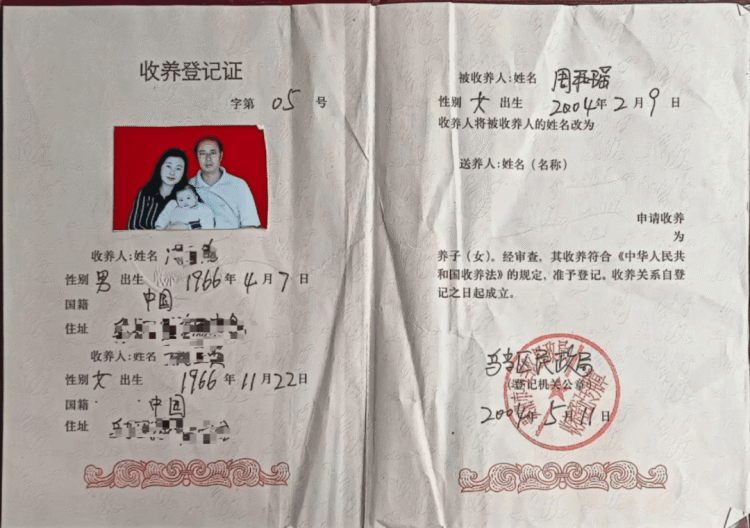 收养登记证
字第 05 号
收养人:姓名
性别 男 出生 1966 年 4 月 7 日
国籍 中国
住址
收养人:姓名
性别 女 出生 1966 年 11 月 22 日
国籍 中国
住址
被收养人:姓名 周
性别 女 出生 2004 年 2 月 9 日
收养人将被收养人的姓名改为
送养人:姓名(名称)
申请收养
为
养子(女)。经审查,其收养符合《中华人民共
和国收养法》的规定,准予登记。收养关系自登
记之日起成立。
区民政局
(登记机关公章)
2004 年 5 月 11 日